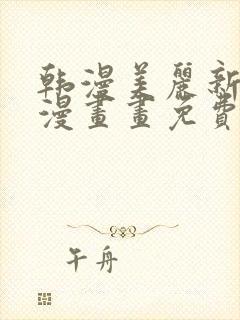 韩漫美麗新
漫畫畫免費
午舟